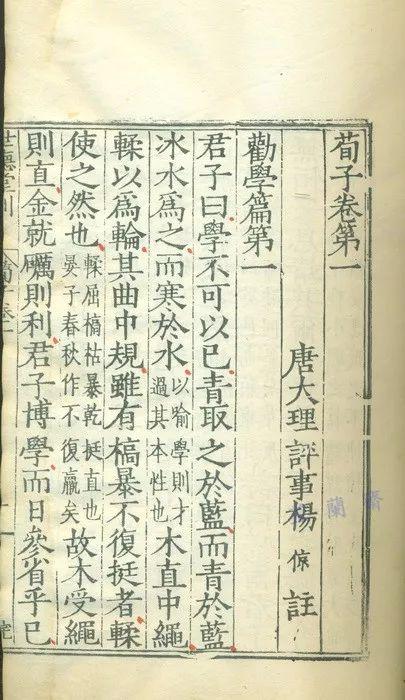 荀子卷第一
唐大理評事楊倞註
勸學篇第一
君子曰學不可以已青取之於藍而青於藍
冰水爲之而寒於水以喻學則才過其本性也木直中繩
輮以爲輪其曲中規雖有槁暴不復挺者輮
使之然也輮屈槁枯暴乾挺直也晏子春秋作不復羸矣故木受繩
則直金就礪則利君子博學而日參省乎已